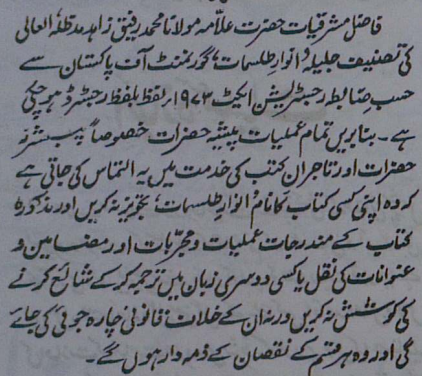 فاضلِ مشرقیات حضرت علّامہ مولانا محمد رفیق زاہد مدظلہ العالی
کی تصنیف جلیلہ "انوارِ طلسمات" گورنمنٹ آف پاکستان سے
حسب ضابطہ رجسٹریشن ایکٹ ۱۹۷۳ء لفظ بلفظ رجسٹرڈ ہو چکی
ہے۔ بنابریں تمام عملیات پیشہ حضرات خصوصاً پبلشرز
حضرات اور تاجرانِ کتب کی خدمت میں یہ التماس کی جاتی ہے
کہ وہ اپنی کسی کتاب کا نام "انوارِ طلسمات" تجویز نہ کریں اور مذکورہ
کتاب کے مندرجات عملیات و مجرّبات اور مضامین و
عنوانات کی نقل یا کسی دوسری زبان میں ترجمہ کر کے شائع کرنے
کی کوشش نہ کریں ورنہ ان کے خلاف قانونی چارہ جوئی کی جائے
گی اور وہ ہر قسم کے نقصان کے ذمہ دار ہوں گے۔